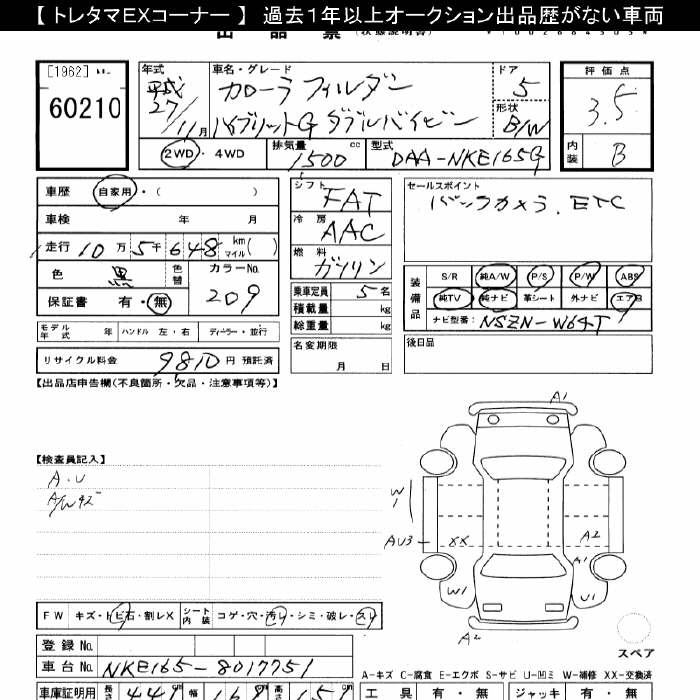 【 トレタマEXコーナー 】 過去1年以上オークション出品歴がない車両
[1962]
60210
年式 平成27/11月
車名・グレード カローラ フィルダー
ハイブリットG ダブルバイビー
ドア 5
形状 B/W
評価点
3.5
内装 B
2WD ・ 4WD
排気量 1500 cc
型式 DAA-NKE165G
車歴 自家用・( )
車検 年 月
走行 10万5千648 km マイル( )
色 黒 色替
カラーNo. 209
保証書 有・無
モデル年式 年 ハンドル 左・右 ディーラー・並行
リサイクル料金 9810 円 預託済
シフト FAT
冷房 AAC
燃料 ガソリン
乗車定員 5 名
積載量 kg
総重量 kg
名変期限
月 日
セールスポイント
バックカメラ、ETC
装備品
S/R 純A/W P/S P/W ABS
純TV 純ナビ 革シート 外ナビ エアB
ナビ型番: NSZN-W64T
後日品
【出品店申告欄(不良箇所・欠品・注意事項等)】
【検査員記入】
A・U
A1
W1
AU3
XX
A2
A1
W1
U1
A2
スペア
FW キズ・トビ石・割レX
シート内装 コゲ・穴・汚レ・シミ・破レ・スレ
登録 No.
車台 No. NKE165-8017751
A-キズ C-腐食 E-エクボ S-サビ U-凹ミ W-補修 XX-交換済
車庫証明用 長さ 441 cm 幅 169 cm 高さ 151 cm
工具 有・無 ジャッキ 有・無